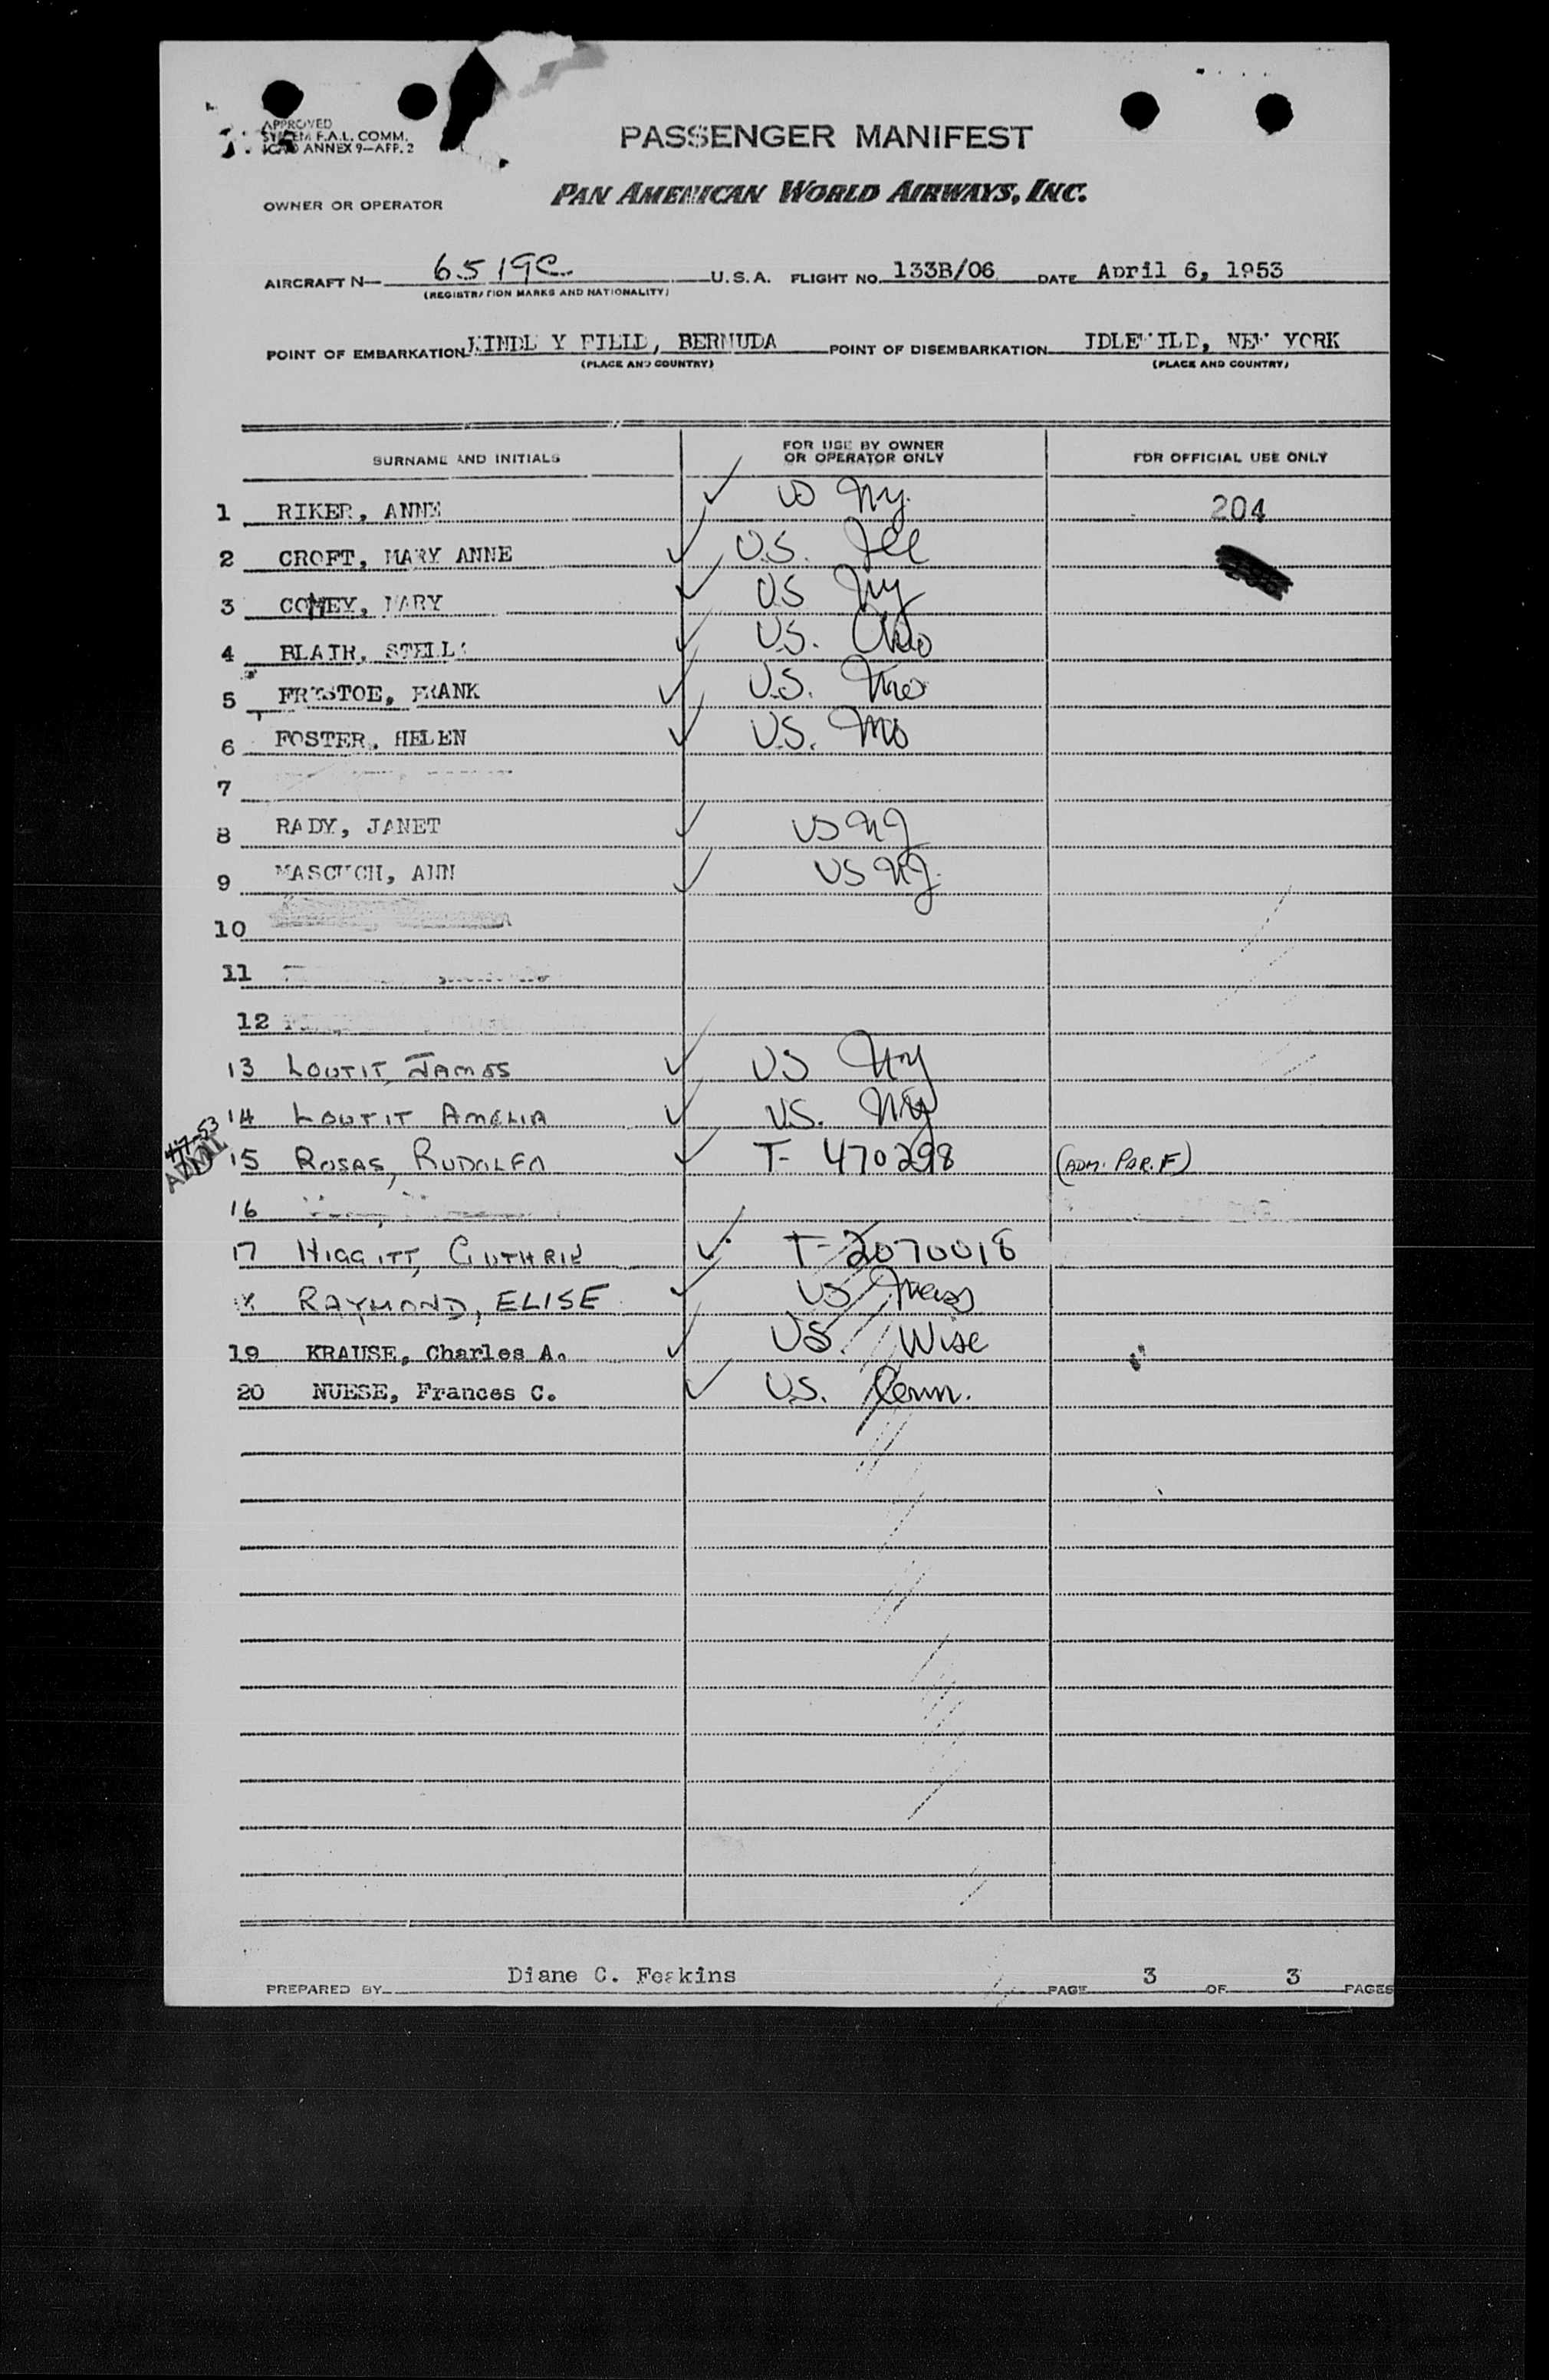 APPROVED
SYSTEM F.A.L. COMM.
ICAO ANNEX 9—APP. 2
PASSENGER MANIFEST
PAN AMERICAN WORLD AIRWAYS, INC.
OWNER OR OPERATOR
AIRCRAFT N— 6519C U.S.A. FLIGHT NO. 133B/06 DATE April 6, 1953
(REGISTRATION MARKS AND NATIONALITY)
POINT OF EMBARKATION KINDL Y FIELD, BERMUDA POINT OF DISEMBARKATION IDLEWILD, NEW YORK
(PLACE AND COUNTRY) (PLACE AND COUNTRY)
SURNAME AND INITIALS FOR USE BY OWNER OR OPERATOR ONLY FOR OFFICIAL USE ONLY
1 RIKER, ANNE ✓ US NY. 204
2 CROFT, MARY ANNE ✓ U.S. Ill
3 COMEY, MARY ✓ US NY
4 BLAIR, STELLA ✓ U.S. Ohio
5 FRISTOE, FRANK ✓ U.S. Mo
6 FOSTER, HELEN ✓ U.S. Mo
7
8 RADY, JANET ✓ US NJ
9 MASCUCH, ANN ✓ US NJ.
10
11
12
13 LOUTIT, JAMES ✓ US NY
14 LOUTIT AMELIA ✓ US. NY
4-7-53
ADML
15 ROSAS, RUDOLFO ✓ T- 470298 (ADM. PAR. F)
16
17 HIGGITT, GUTHRIE ✓ T- 2070018
18 RAYMOND, ELISE ✓ US Mass
19 KRAUSE, Charles A. ✓ US. Wisc
20 NUESE, Frances C. ✓ U.S. Conn.
PREPARED BY Diane C. Feakins PAGE 3 OF 3 PAGES